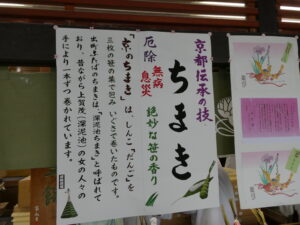 京都伝承の技
ちまき
厄除
無病
息災
絶妙な笹の香り
「京のちまき」は、しんこ「だんご」を
三枚の笹の葉で包み、いぐさで巻いたものです。
出町ふたばのちまきは、「深泥池ちまき」と呼ばれて
おり、昔ながら上賀茂(深泥池)の女の人々の
手により一本ずつ巻かれています。